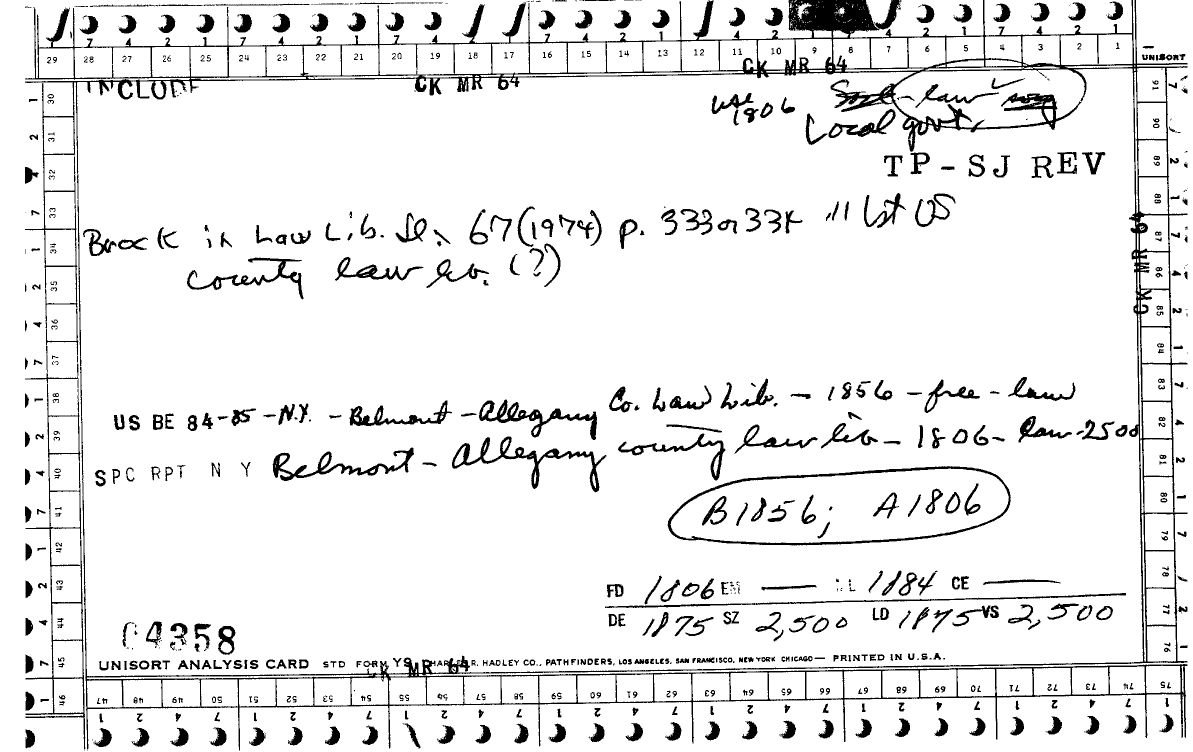 7 4 2 1 7 4 2 1 7 4 2 1 7 4 2 1 7 4 2 1 7 4 2 1
29 28 27 26 25 24 23 22 21 20 19 18 17 16 15 14 13 12 11 10 9 8 7 6 5 4 3 2 1
UNISORT
INCLUDE CK MR 64 CK MR 64
use 1806 law
Local govt.
TP-SJ REV
Brock in Law Lib. Jl. 67 (1974) p. 333 or 334 1st US
county law lib. (?)
CK MR 64
US BE 84-85 - N.Y. - Belmont - Allegany Co. Law Lib. - 1856 - free - law
SPC RPT N Y Belmont - Allegany county law lib - 1806 - law - 2500
B1856; A1806
FD 1806 EM — ML 1884 CE —
DE 1875 SZ 2,500 LD 1875 VS 2,500
04358
UNISORT ANALYSIS CARD STD FORM Y9 CHARLES R. HADLEY CO., PATHFINDERS, LOS ANGELES, SAN FRANCISCO, NEW YORK CHICAGO — PRINTED IN U.S.A.
CK MR 64
30 31 32 33 34 35 36 37 38 39 40 41 42 43 44 45 46
91 90 89 88 87 86 85 84 83 82 81 80 79 78 77 76
47 48 49 50 51 52 53 54 55 56 57 58 59 60 61 62 63 64 65 66 67 68 69 70 71 72 73 74 75